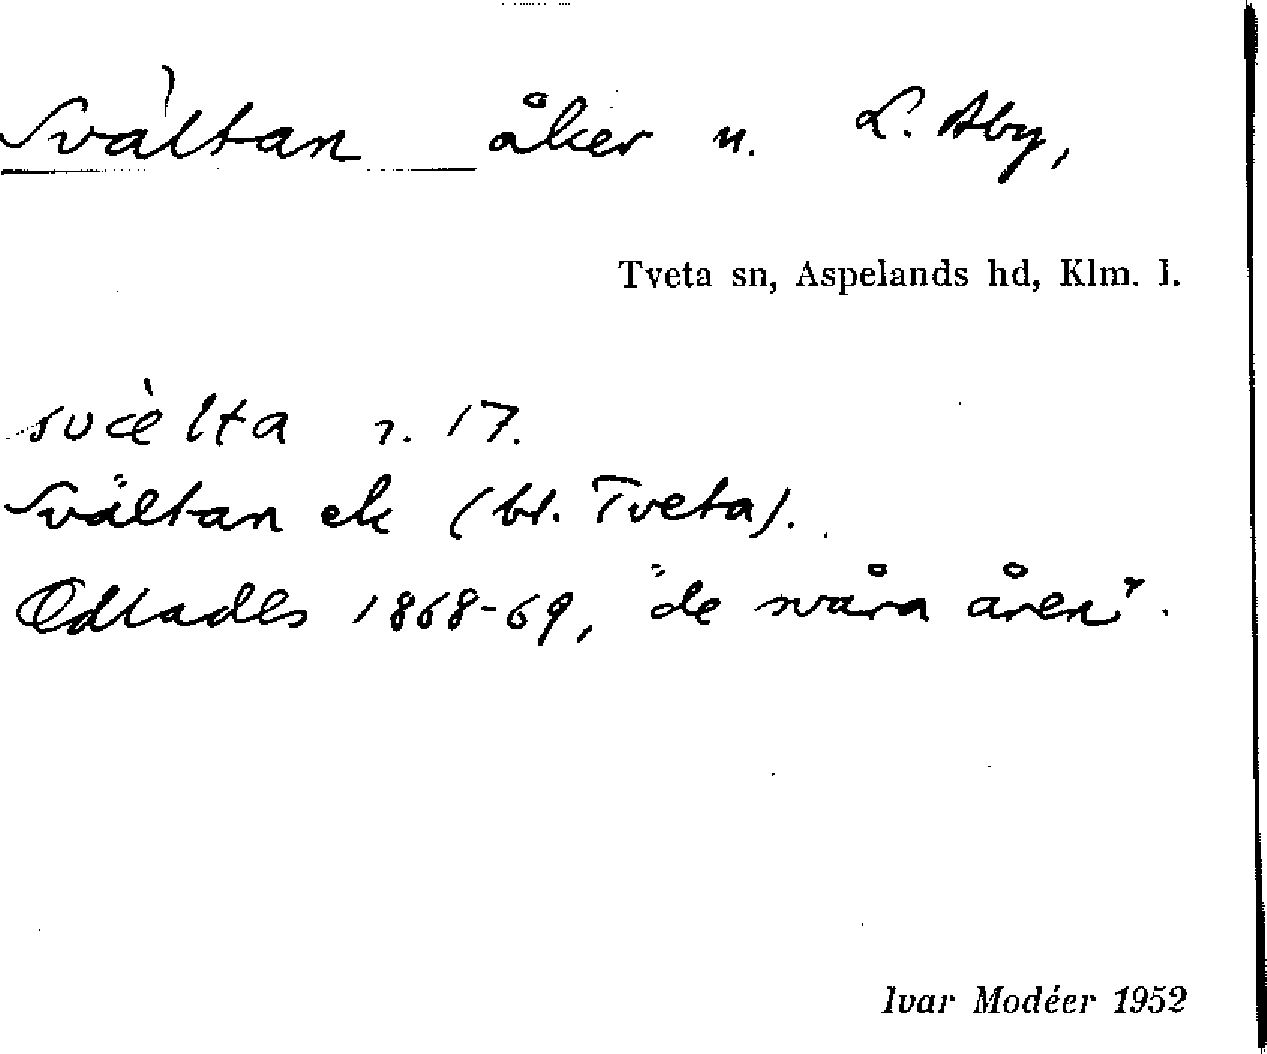 Svältan åker u. L. Aby,
Tveta sn, Aspelands hd, Klm. l.
svæ̀lta r. 17.
Svältan ek (bl. Tveta).
Odlades 1868-69, "de svåra åren".
Ivar Modéer 1952